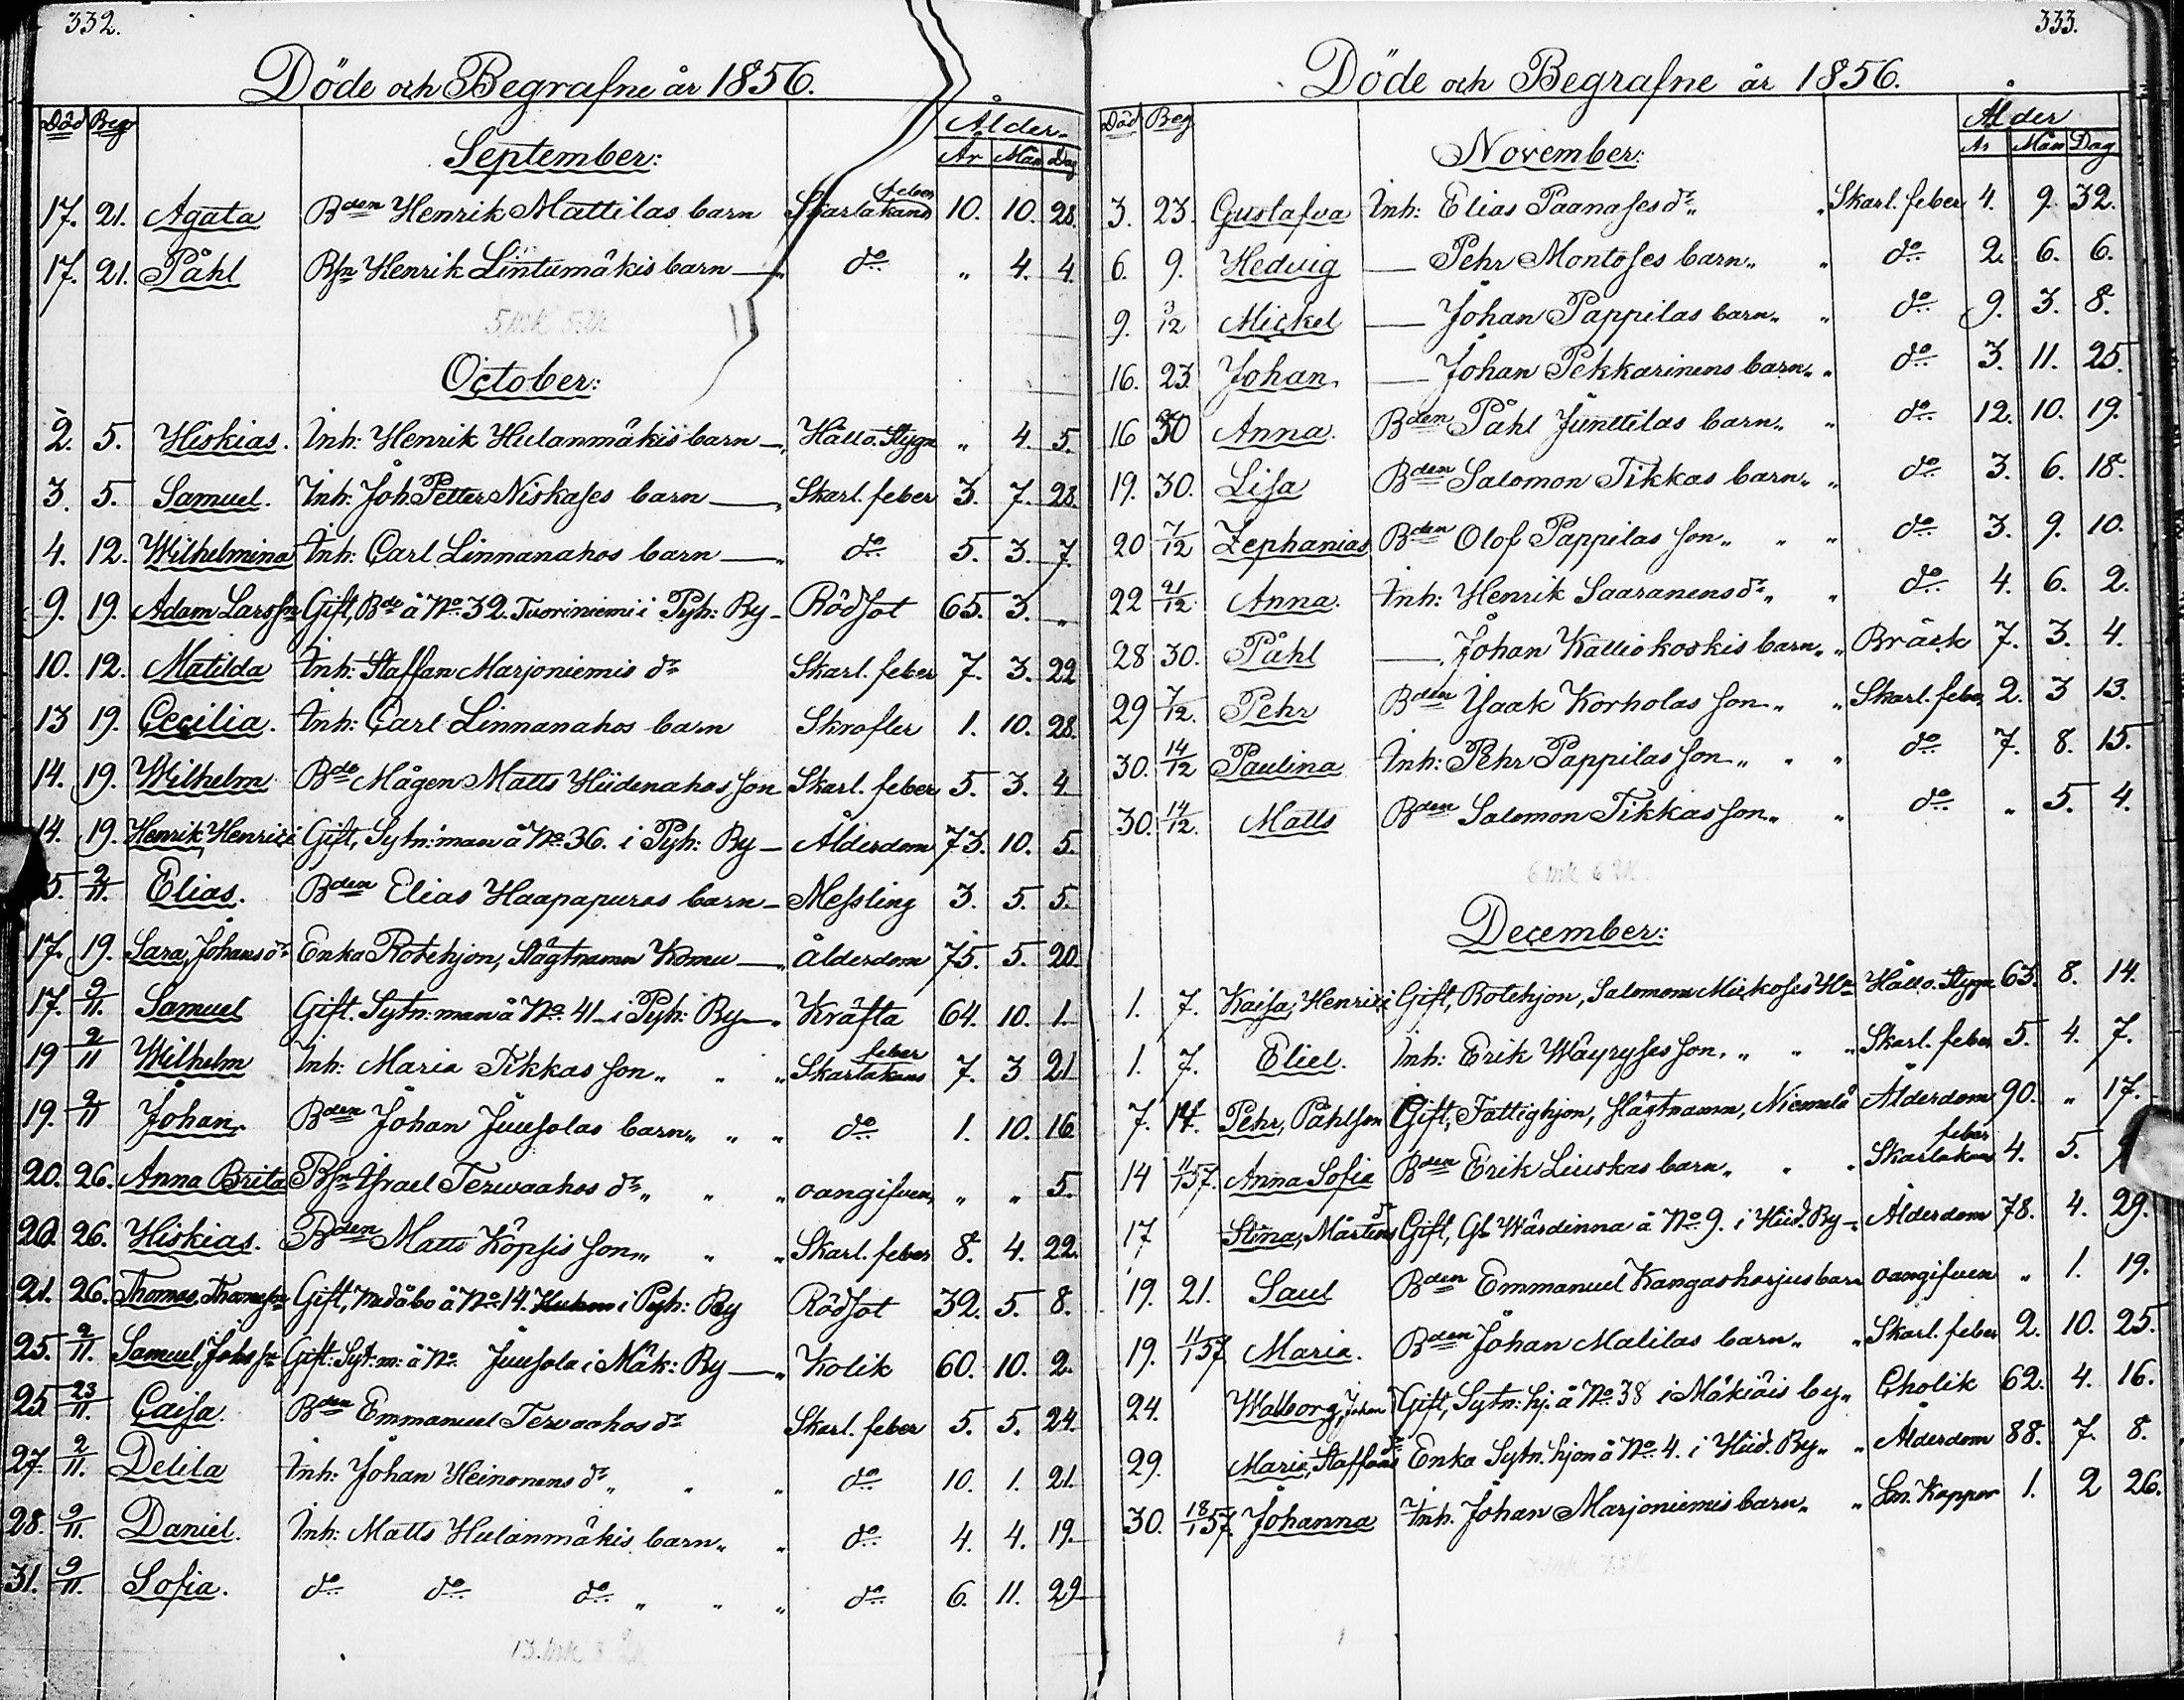 332.
Döde och Begrafne år 1856.
Död Begr Ålder
År Mån Dag
September:
17. 21. Agata Bden Henrik Mattilas barn Skarlakans feber 10. 10. 28.
17. 21. Påhl Bsn Henrik Lintumäkis barn — do „ 4. 4.
October:
2. 5. Hiskias. Inh: Henrik Hulanmäkis barn — Håll o. Stygn „ 4. 5.
3. 5. Samuel. Inh: Joh. Petter Niskases barn — Skarl. feber 3. 7. 28.
4. 12. Wilhelmina Inh: Carl Linnanahos barn — do 5. 3. 7.
9. 19. Adam Larssn Gift, Bde å No 32. Tuoriniemi i Pyh: By — Rödsot 65. 3. „
10. 12. Matilda Inh: Staffan Marjoniemis dr Skarl. feber 7. 3. 22
13 19. Cecilia. Inh: Carl Linnanahos barn Skrofler 1. 10. 28.
14. 19. Wilhelm Bde Mågen Matts Hiidenahos son Skarl. feber 5. 3. 4
14. 19. Henrik Henrici Gift, Sytn: man å No 36. i Pyh: By — Ålderdom 73. 10. 5.
15. 2/11. Elias. Bden Elias Haapapuros barn — Messling 3. 5. 5.
17. 19. Sara, Johans dr Enka Rotehjon, Slägtnamn Komu — ålderdom 75. 5. 20.
17. 9/11. Samuel Gift. Sytn: man å No 41 — i Pyh: By — Kräfta 64. 10. 1.
19 2/11 Wilhelm Inh: Maria Tikkas son „ „ „ Skarlakans feber 7. 3 21
19. 2/11 Johan. Bden Johan Juusolas barn „ „ „ do 1. 10. 16
20. 26. Anna Brita Bsn Israel Terwaahos dr „ „ „ oangifven „ „ 5.
20. 26. Hiskias. Bden Matts Köpsis son „ „ „ Skarl. feber 8. 4. 22.
21. 26. Thomas Thomassn Gift, Nedåbo å No 14. i Pyh: By Rödsot 32. 5. 8.
25. 2/11. Samuel, Johs sn Gift: Syt: m: å No Juusola i Mäk: By — Kolik 60. 10. 2.
25 23/11. Caisa. Bden Emmanuel Terwaahos dr Skarl. feber 5. 5. 24.
27. 2/11. Delila Inh: Johan Heinonens dr „ „ „ do 10. 1. 21.
28. 9/11. Daniel. Inh: Matts Hulanmäkis barn „ „ do 4. 4. 19.
31. 9/11. Sofia. do do do „ „ „ do 6. 11. 29
333.
Döde och Begrafne år 1856.
Död Beg Ålder
År Mån Dag
November:
3. 23. Gustafva Inh: Elias Paanases dr „ „ Skarl. feber 4. 9. 32.
6. 9. Hedvig — Pehr Montoses barn „ „ do 2. 6. 6.
9. 3/12 Mickel — Johan Pappilas barn „ „ do 9. 3. 8.
16. 23. Johan. — Johan Pekkarinens barn „ „ do 3. 11. 25.
16 30 Anna. Bden Påhl Junttilas barn „ „ do 12. 10. 19.
19. 30. Lisa Bden Salomon Tikkas barn „ „ do 3. 6. 18.
20 7/12 Zephanias Bden Olof Pappilas son „ „ „ do 3. 9. 10.
22 21/12. Anna. Inh: Henrik Saaranens dr „ „ do 4. 6. 2.
28 30. Påhl — Johan Kalliokoskis barn „ „ Bråck 7. 3. 4.
29 7/12. Pehr Bden Isaak Korholas son „ „ Skarl. feber 2. 3 13.
30. 14/12 Paulina Inh: Pehr Pappilas son „ „ „ do 7. 8. 15.
30. 14/12. Matts Bden Salomon Tikkas son „ „ do „ 5. 4.
December:
1. 7. Kaisa, Henrici Gift, Rotehjon, Salomon Mickoses Hu Håll o. Stygn 63. 8. 14.
1. 7. Eliel. Inh: Erik Wäyryses son. „ „ „ Skarl. feber 5. 4. 7.
7. 14. Pehr, Påhlson Gift, Fattighjon, slägtnamn, Niemelä Ålderdom 90. „ 17.
14 11/1 57. Anna Sofia Bden Erik Liuskas barn „ „ „ Skarlakans feber 4. 5.
17 Stina, Mårtens dr Gift, Gl. Wärdinna å No 9. i Hiid. By — Ålderdom 78. 4. 29.
19. 21. Saul Bden Emmanuel Kangasharjus barn oangifven „ 1. 19.
19. 11/1 57 Maria. Bden Johan Malilas barn „ „ Skarl. feber 2. 10. 25.
24. Walborg, Johan dr Gift, Sytn: hj. å No 38 i Mäkiäis by „ Cholik 62. 4. 16.
29. Maria, Staffans dr Enka Sytn. hjon å No 4. i Hiid. By „ „ Ålderdom 88. 7. 8.
30. 18/1 57. Johanna Inh. Johan Marjoniemis barn „ „ Sm. Koppor 1. 2 26.